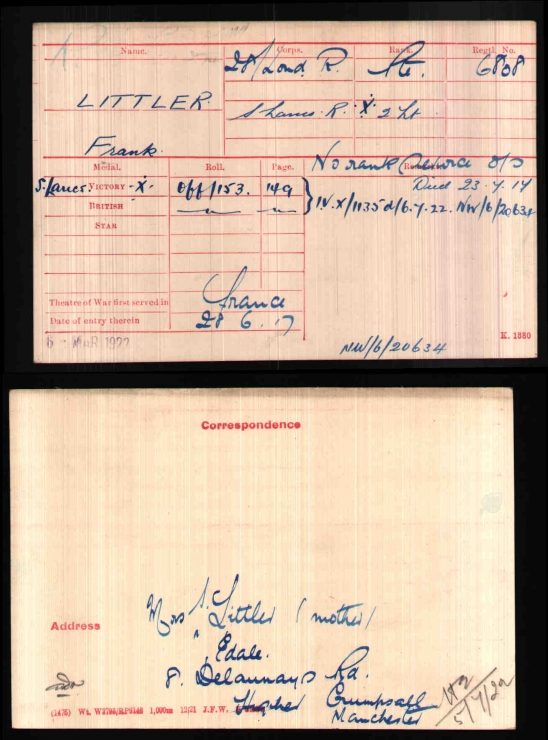 Name. Corps. Rank. Regtl. No.
28/Lond. R. Pte. 6808
LITTLER. S Lancs. R. X 2 Lt
Frank.
Medal. Roll. Page. No rank service o/s
S. Lancs. VICTORY - X - Off/153. 149 Died 23.7.17
BRITISH — " — — " — IV.X/1135d/6.7.22. NW/6/20634
STAR
Theatre of War first served in France
Date of entry therein 28 6. 17
6 - MAR 1922 K. 1380
NW/6/20634
Correspondence
Mrs S. Littler (mother)
Address
Edale.
8. Delaunays Rd.
Higher Crumpsall
Manchester
(1475) Wt. 1,000m 12/21 J.F.W.